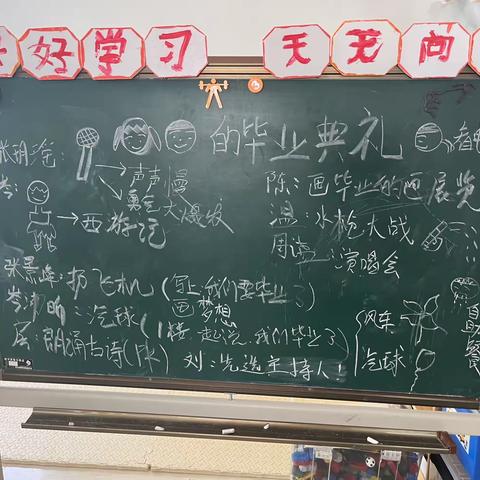 好好学习 天天向
的毕业典礼
张胡淦：
声声慢
勇气大爆发
西游记
陈：画毕业的画展览
温：水枪大战
周：演唱会
张景峰：扔飞机（写上：我们要毕业了）
画梦想
岑沛昀：汽球（一楼一起说：我们毕业了）
居：朗诵古诗
刘：先选主持人！
风车
汽球
自助餐